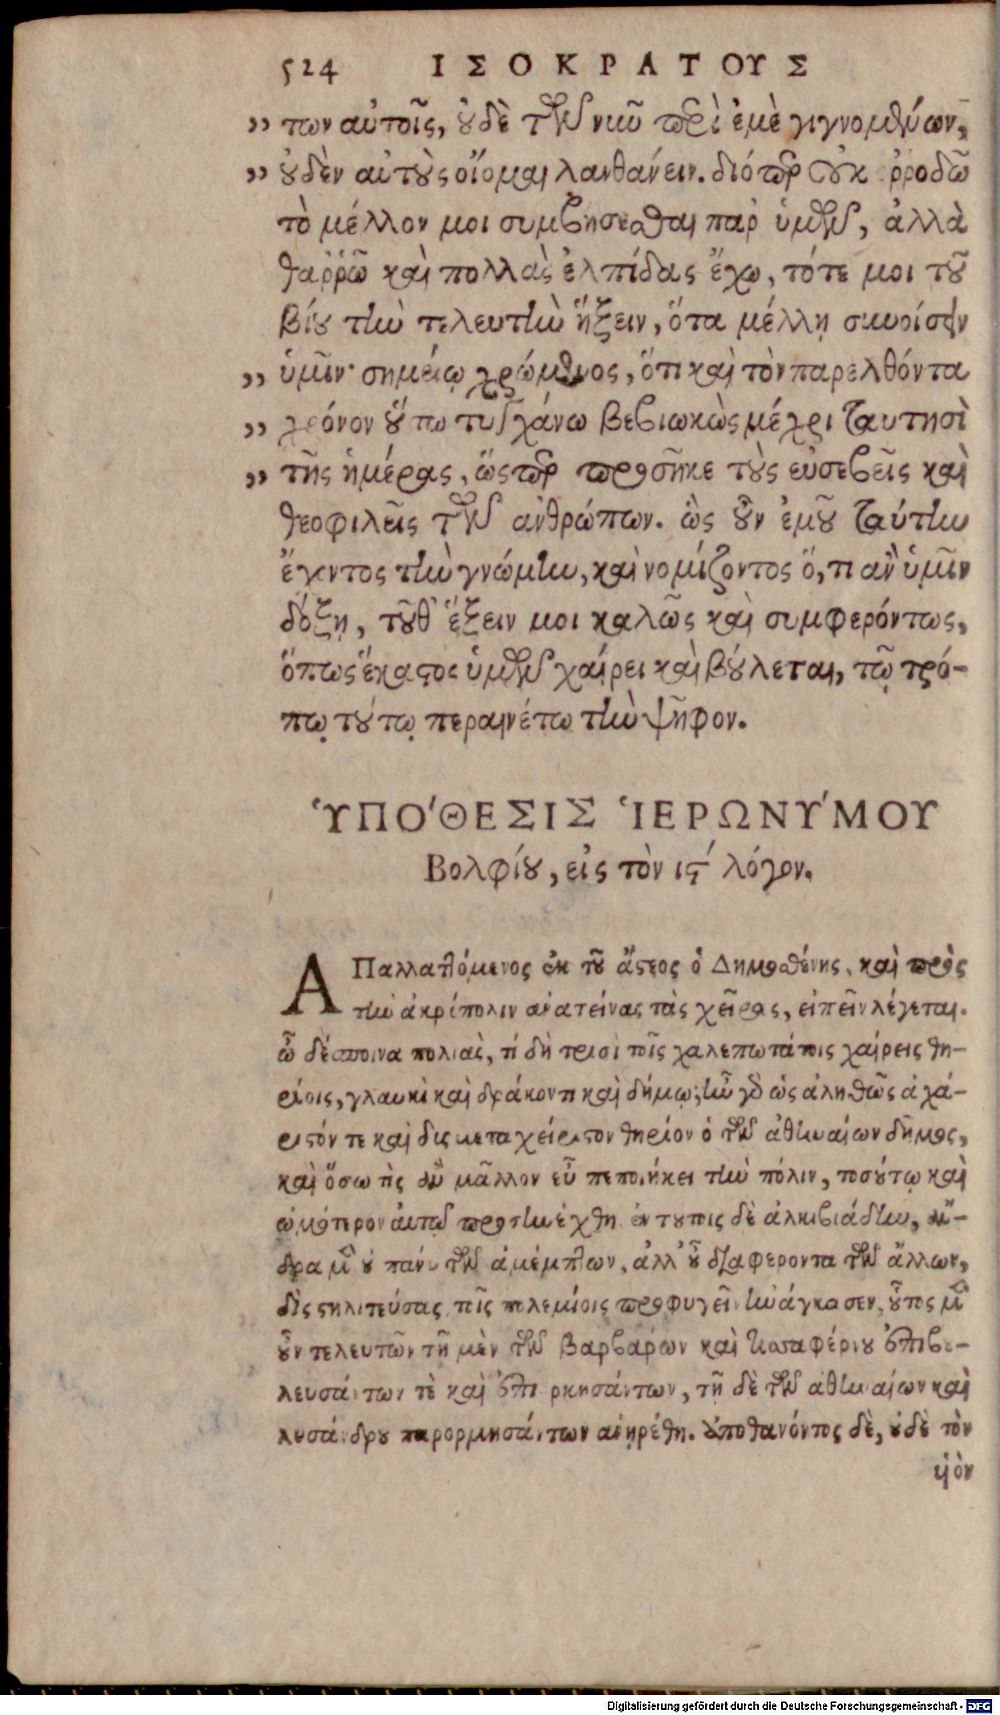 524 ΙΣΟΚΡΑΤΟΥΣ
” των αὐτοῖς, οὐδὲ τῶν νῦν περὶ ἐμὲ γιγνομένων,
” οὐδὲν αὐτοὺς οἴομαι λανθάνειν. διόπερ οὐκ ὀρρωδῶ
τὸ μέλλον μοι συμβήσεσθαι παρ' ὑμῶν, ἀλλὰ
θαρρῶ καὶ πολλὰς ἐλπίδας ἔχω, τότε μοι τοῦ
βίου τὴν τελευτὴν ἥξειν, ὅταν μέλλῃ συνοίσειν
” ὑμῖν· σημείῳ χρώμενος, ὅτι καὶ τὸν παρελθόντα
” χρόνον οὕτω τυγχάνω βεβιωκὼς μέχρι ταυτησὶ
” τῆς ἡμέρας, ὥσπερ προσῆκε τοὺς εὐσεβεῖς καὶ
θεοφιλεῖς τῶν ἀνθρώπων. ὡς οὖν ἐμοῦ ταύτην
ἔχοντος τὴν γνώμην, καὶ νομίζοντος ὅ,τι ἂν ὑμῖν
δόξῃ, τοῦθ' ἕξειν μοι καλῶς καὶ συμφερόντως,
ὅπως ἕκαστος ὑμῶν χαίρει καὶ βούλεται, τῷ τρό-
πῳ τούτῳ περαινέτω τὴν ψῆφον.
ὙΠΌΘΕΣΙΣ ἹΕΡΩΝΎΜΟΥ
Βολφίου, εἰς τὸν ις' λόγον.
ΑΠαλλαττόμενος ἐκ τοῦ ἄστεος ὁ Δημοσθένης, καὶ πρὸς
τὴν ἀκρόπολιν ἀνατείνας τὰς χεῖρας, εἰπεῖν λέγεται.
ὦ δέσποινα πολιὰς, τί δὴ τρισὶ τοῖς χαλεπωτάτοις χαίρεις θη-
ρίοις, γλαυκὶ καὶ δράκοντι καὶ δήμῳ; ἦν γὰρ ὡς ἀληθῶς ἀχά-
ριστόν τε καὶ δυσμεταχείριστον θηρίον ὁ τῶν ἀθηναίων δῆμος,
καὶ ὅσῳ τὶς ἂν μᾶλλον εὖ πεποιήκει τὴν πόλιν, τοσούτῳ καὶ
ὠμότερον αὐτῷ προσηνέχθη. ἐν τούτοις δὲ ἀλκιβιάδην, ἄν-
δρα μὲν οὐ πάνυ τῶν ἀμέμπτων, ἀλλ' οὖν διαφέροντα τῶν ἄλλων,
δὶς στηλιτεύσας τοῖς πολεμίοις προσφυγεῖν ἠνάγκασεν, οὗτος μὲν
οὖν τελευτῶν τῇ μὲν τῶν βαρβάρων καὶ τισσαφέρνου ἐπιβου-
λευσάντων τὲ καὶ ἐπιορκησάντων, τῇ δὲ τῶν ἀθηναίων καὶ
λυσάνδρου παρορμησάντων ἀνῃρέθη. ἀποθανόντος δὲ, οὐδὲ τὸν
υἱὸν
Digitalisierung gefördert durch die Deutsche Forschungsgemeinschaft - DFG